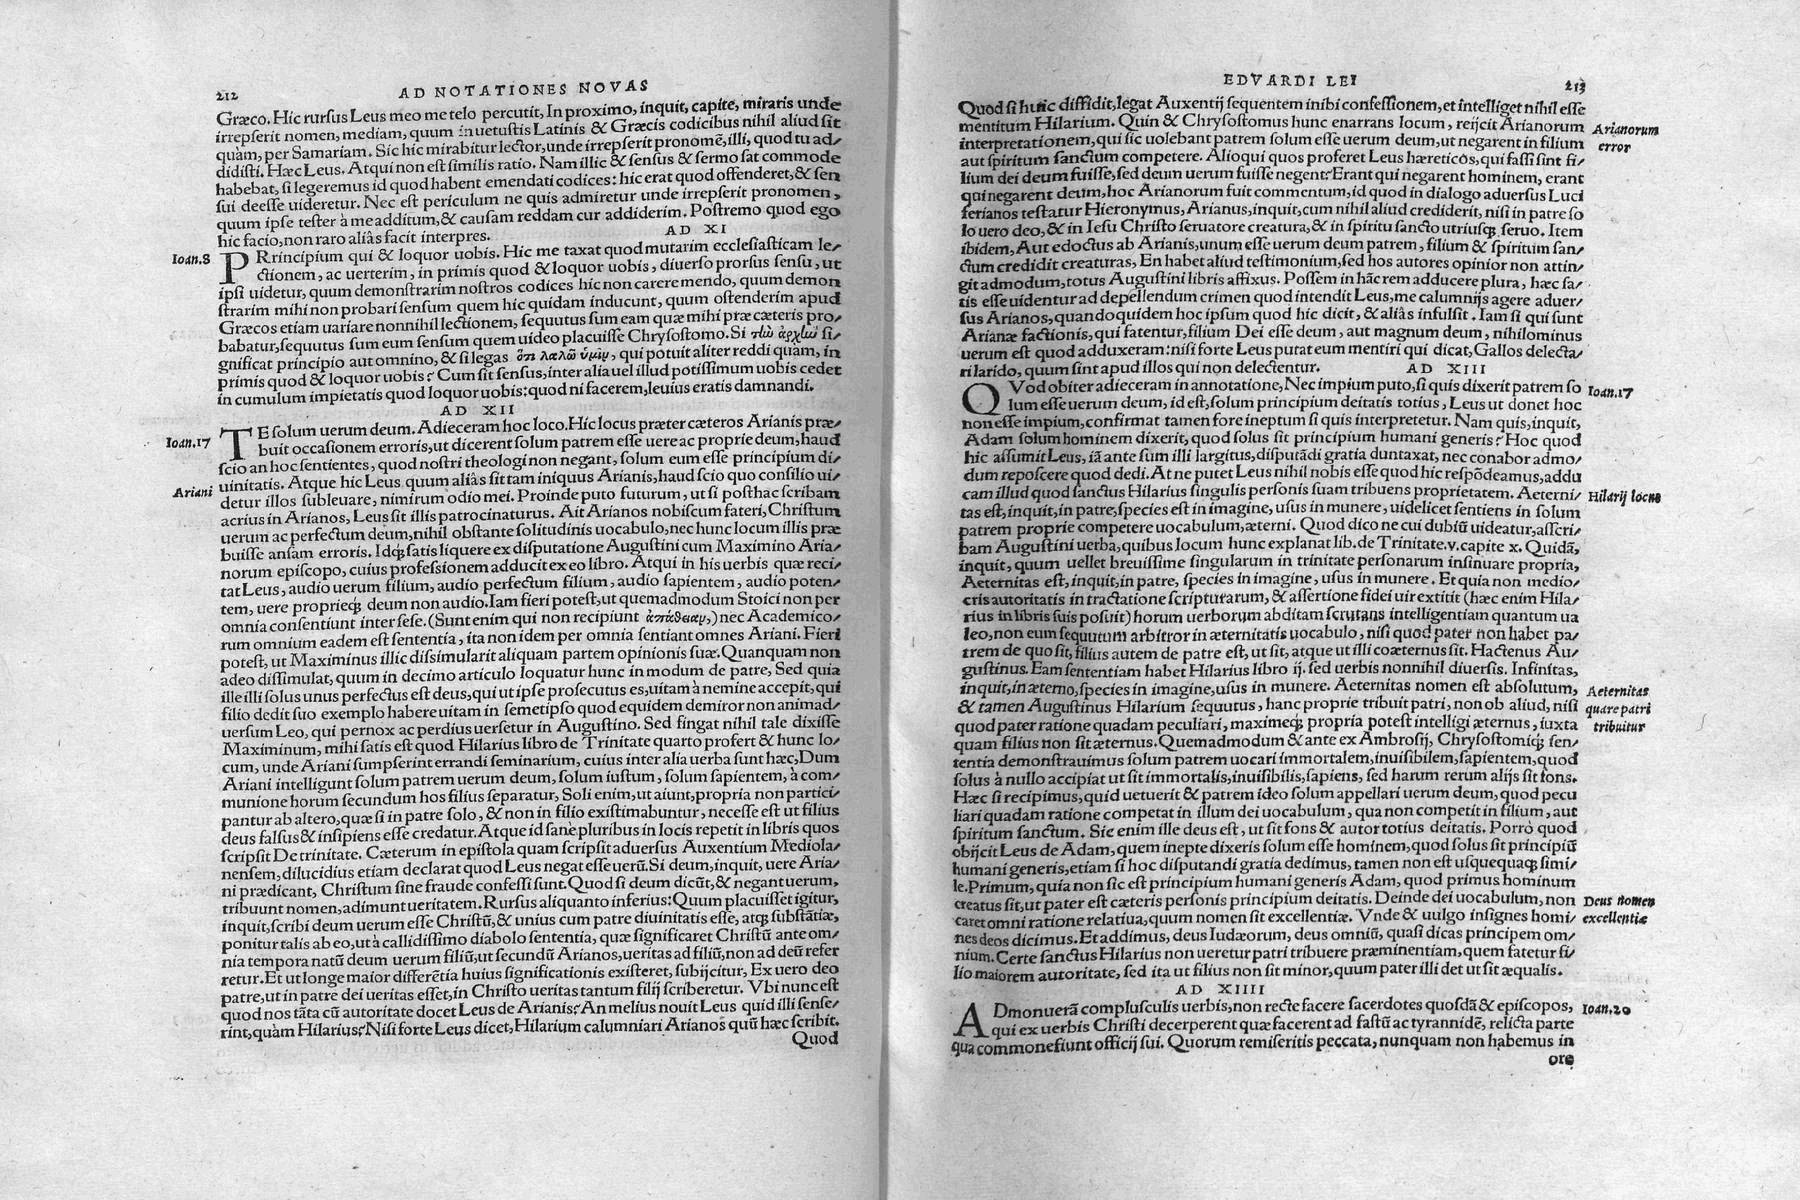 212
AD NOTATIONES NOVAS
Græco. Hic rursus Leus meo me telo percutit, In proximo, inquit, capite, miraris unde
irrepserit nomen, mediam, quum in uetustis Latinis & Græcis codicibus nihil aliud sit
quàm, per Samariam. Sic hic mirabitur lector, unde irrepserit pronomẽ, illi, quod tu ad/
didisti. Hæc Leus. Atqui non est similis ratio. Nam illic & sensus & sermo sat commode
habebat, si legeremus id quod habent emendati codices: hic erat quod offenderet, & sen
sui deesse uideretur. Nec est periculum ne quis admiretur unde irrepserit pronomen,
quum ipse tester à me additum, & causam reddam cur addiderim. Postremo quod ego
hic facio, non raro aliâs facit interpres.
AD XI
Ioan.8
PRrincipium qui & loquor uobis. Hic me taxat quod mutarim ecclesiasticam le/
ctionem, ac uerterim, in primis quod & loquor uobis, diuerso prorsus sensu, ut
ipsi uidetur, quum demonstrarim nostros codices hic non carere mendo, quum demon
strarim mihi non probari sensum quem hic quidam inducunt, quum ostenderim apud
Græcos etiam uariare nonnihil lectionem, sequutus sum eam quæ mihi præ cæteris pro/
babatur, sequutus sum eum sensum quem uideo placuisse Chrysostomo. Si τὴν ἀρχὴν si/
gnificat principio aut omnino, & si legas ὅτι λαλῶ ὑμῖν, qui potuit aliter reddi quàm, in
primis quod & loquor uobis? Cum sit sensus, inter alia uel illud potissimum uobis cedet
in cumulum impietatis quod loquor uobis: quod ni facerem, leuius eratis damnandi.
AD XII
Ioan.17
TE solum uerum deum. Adieceram hoc loco. Hic locus præter cæteros Arianis præ/
buit occasionem erroris, ut dicerent solum patrem esse uere ac proprie deum, haud
scio an hoc sentientes, quod nostri theologi non negant, solum eum esse principium di/
uinitatis. Atque hic Leus quum aliâs sit tam iniquus Arianis, haud scio quo consilio ui/
Ariani
detur illos subleuare, nimirum odio mei. Proinde puto futurum, ut si posthac scribam
acrius in Arianos, Leus sit illis patrocinaturus. Ait Arianos nobiscum fateri, Christum
uerum ac perfectum deum, nihil obstante solitudinis uocabulo, nec hunc locum illis præ
buisse ansam erroris. Idq́; satis liquere ex disputatione Augustini cum Maximino Aria/
norum episcopo, cuius professionem adducit ex eo libro. Atqui in his uerbis quæ reci/
tat Leus, audio uerum filium, audio perfectum filium, audio sapientem, audio poten/
tem, uere proprieq́; deum non audio. Iam fieri potest, ut quemadmodum Stoici non per
omnia consentiunt inter sese. (Sunt enim qui non recipiunt ἀπάθειαν,) nec Academico/
rum omnium eadem est sententia, ita non idem per omnia sentiant omnes Ariani. Fieri
potest, ut Maximinus illic dissimularit aliquam partem opinionis suæ. Quanquam non
adeo dissimulat, quum in decimo articulo loquatur hunc in modum de patre, Sed quia
ille illi solus unus perfectus est deus, qui ut ipse prosecutus es, uitam à nemine accepit, qui
filio dedit suo exemplo habere uitam in semetipso quod equidem demiror non animad/
uersum Leo, qui pernox ac perdius uersetur in Augustino. Sed fingat nihil tale dixisse
Maximinum, mihi satis est quod Hilarius libro de Trinitate quarto profert & hunc lo/
cum, unde Ariani sumpserint errandi seminarium, cuius inter alia uerba sunt hæc, Dum
Ariani intelligunt solum patrem uerum deum, solum iustum, solum sapientem, à com/
munione horum secundum hos filius separatur, Soli enim, ut aiunt, propria non partici/
pantur ab altero, quæ si in patre solo, & non in filio existimabuntur, necesse est ut filius
deus falsus & insipiens esse credatur. Atque id sanè pluribus in locis repetit in libris quos
scripsit De trinitate. Cæterum in epistola quam scripsit aduersus Auxentium Mediola/
nensem, dilucidius etiam declarat quod Leus negat esse uerũ. Si deum, inquit, uere Aria/
ni prædicant, Christum sine fraude confessi sunt. Quod si deum dicũt, & negant uerum,
tribuunt nomen, adimunt ueritatem. Rursus aliquanto inferius: Quum placuisset igitur,
inquit, scribi deum uerum esse Christũ, & unius cum patre diuinitatis esse, atq́; substãtiæ,
ponitur talis ab eo, ut à callidissimo diabolo sententia, quæ significaret Christũ ante om/
nia tempora natũ deum uerum filiũ, ut secundũ Arianos, ueritas ad filiũ, non ad deũ refer
retur. Et ut longe maior differẽtia huius significationis existeret, subijcitur, Ex uero deo
patre, ut in patre dei ueritas esset, in Christo ueritas tantum filij scriberetur. Vbi nunc est
quod nos tãta cũ autoritate docet Leus de Arianis? An melius nouit Leus quid illi sense/
rint, quàm Hilarius? Nisi forte Leus dicet, Hilarium calumniari Arianos quũ hæc scribit.
Quod
EDVARDI LEI
213
Quod si huic diffidit, legat Auxentij sequentem inibi confessionem, et intelliget nihil esse
mentitum Hilarium. Quin & Chrysostomus hunc enarrans locum, reijcit Arianorum
Arianorum
error
interpretationem, qui sic uolebant patrem solum esse uerum deum, ut negarent in filium
aut spiritum sanctum competere. Alioqui quos proferet Leus hæreticos, qui fassi sint fi/
lium dei deum fuisse, sed deum uerum fuisse negent? Erant qui negarent hominem, erant
qui negarent deum, hoc Arianorum fuit commentum, id quod in dialogo aduersus Luci
ferianos testatur Hieronymus, Arianus, inquit, cum nihil aliud crediderit, nisi in patre so
lo uero deo, & in Iesu Christo seruatore creatura, & in spiritu sancto utriusq́; seruo. Item
ibidem, Aut edoctus ab Arianis, unum esse uerum deum patrem, filium & spiritum san/
ctum credidit creaturas, En habet aliud testimonium, sed hos autores opinior non attin/
git admodum, totus Augustini libris affixus. Possem in hãc rem adducere plura, hæc sa/
tis esse uidentur ad depellendum crimen quod intendit Leus, me calumnijs agere aduer/
sus Arianos, quandoquidem hoc ipsum quod hic dicit, & aliâs infulsit. Iam si qui sunt
Arianæ factionis, qui fatentur, filium Dei esse deum, aut magnum deum, nihilominus
uerum est quod adduxeram: nisi forte Leus putat eum mentiri qui dicat, Gallos delecta/
ri larido, quum sint apud illos qui non delectentur.
AD XIII
QVod obiter adieceram in annotatione, Nec impium puto, si quis dixerit patrem so
Ioan.17
lum esse uerum deum, id est, solum principium deitatis totius, Leus ut donet hoc
non esse impium, confirmat tamen fore ineptum si quis interpretetur. Nam quis, inquit,
Adam solum hominem dixerit, quod solus sit principium humani generis? Hoc quod
hic assumit Leus, iã ante sum illi largitus, disputãdi gratia duntaxat, nec conabor admo/
dum reposcere quod dedi. At ne putet Leus nihil nobis esse quod hic respõdeamus, addu
cam illud quod sanctus Hilarius singulis personis suam tribuens proprietatem. Aeterni/
Hilarij locus
tas est, inquit, in patre, species est in imagine, usus in munere, uidelicet sentiens in solum
patrem proprie competere uocabulum, æterni. Quod dico ne cui dubiũ uideatur, asscri/
bam Augustini uerba, quibus locum hunc explanat lib. de Trinitate.v. capite x. Quidã,
inquit, quum uellet breuissime singularum in trinitate personarum insinuare propria,
Aeternitas est, inquit, in patre, species in imagine, usus in munere. Et quia non medio/
cris autoritatis in tractatione scripturarum, & assertione fidei uir extitit (hæc enim Hila/
rius in libris suis posuit) horum uerborum abditam scrutans intelligentiam quantum ua
leo, non eum sequutum arbitror in æternitatis uocabulo, nisi quod pater non habet pa/
trem de quo sit, filius autem de patre est, ut sit, atque ut illi coæternus sit. Hactenus Au/
gustinus. Eam sententiam habet Hilarius libro ij. sed uerbis nonnihil diuersis. Infinitas,
inquit, in æterno, species in imagine, usus in munere. Aeternitas nomen est absolutum,
Aeternitas
quare patri
tribuitur
& tamen Augustinus Hilarium sequutus, hanc proprie tribuit patri, non ob aliud, nisi
quod pater ratione quadam peculiari, maximeq́; propria potest intelligi æternus, iuxta
quam filius non sit æternus. Quemadmodum & ante ex Ambrosij, Chrysostomiq́; sen/
tentia demonstrauimus solum patrem uocari immortalem, inuisibilem, sapientem, quod
solus à nullo accipiat ut sit immortalis, inuisibilis, sapiens, sed harum rerum alijs sit fons.
Hæc si recipimus, quid uetuerit & patrem ideo solum appellari uerum deum, quod pecu
liari quadam ratione competat in illum dei uocabulum, qua non competit in filium, aut
spiritum sanctum. Sic enim ille deus est, ut sit fons & autor totius deitatis. Porrò quod
obijcit Leus de Adam, quem inepte dixeris solum esse hominem, quod solus sit principiũ
humani generis, etiam si hoc disputandi gratia dedimus, tamen non est usquequaq́; simi/
le. Primum, quia non sic est principium humani generis Adam, quod primus hominum
creatus sit, ut pater est cæteris personis principium deitatis. Deinde dei uocabulum, non
Deus nomen
excellentiæ
caret omni ratione relatiua, quum nomen sit excellentiæ. Vnde & uulgo insignes homi/
nes deos dicimus. Et addimus, deus Iudæorum, deus omniũ, quasi dicas principem om/
nium. Certe sanctus Hilarius non ueretur patri tribuere præminentiam, quem fatetur fi/
lio maiorem autoritate, sed ita ut filius non sit minor, quum pater illi det ut sit æqualis.
AD XIIII
ADmonuerã complusculis uerbis, non recte facere sacerdotes quosdã & episcopos,
Ioan.20
qui ex uerbis Christi decerperent quæ facerent ad fastũ ac tyrannidẽ, relicta parte
qua commonefiunt officij sui. Quorum remiseritis peccata, nunquam non habemus in
ore